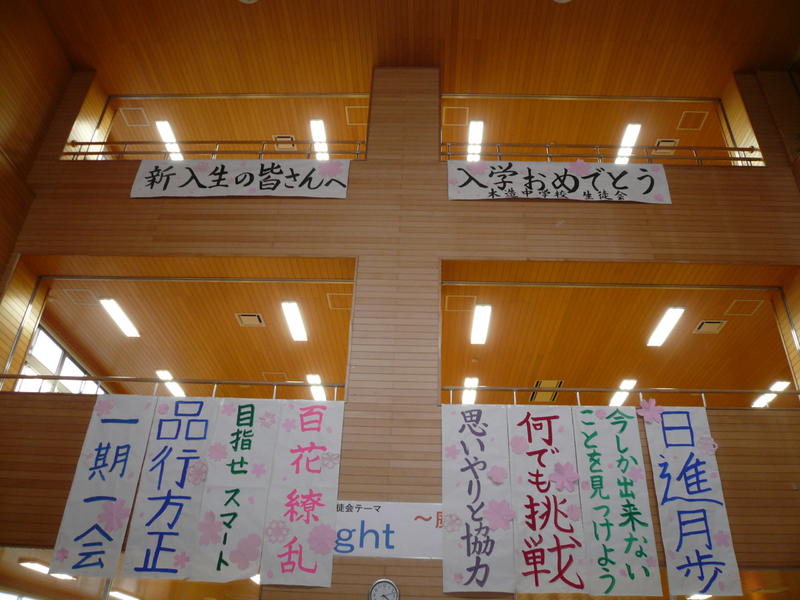 新入生の皆さんへ
入学おめでとう
木造中学校 生徒会
一期一会
品行方正
目指せ スマート
百花繚乱
思いやりと協力
何でも挑戦
今しか出来ない
ことを見つけよう
日進月歩
徒会テーマ
ght